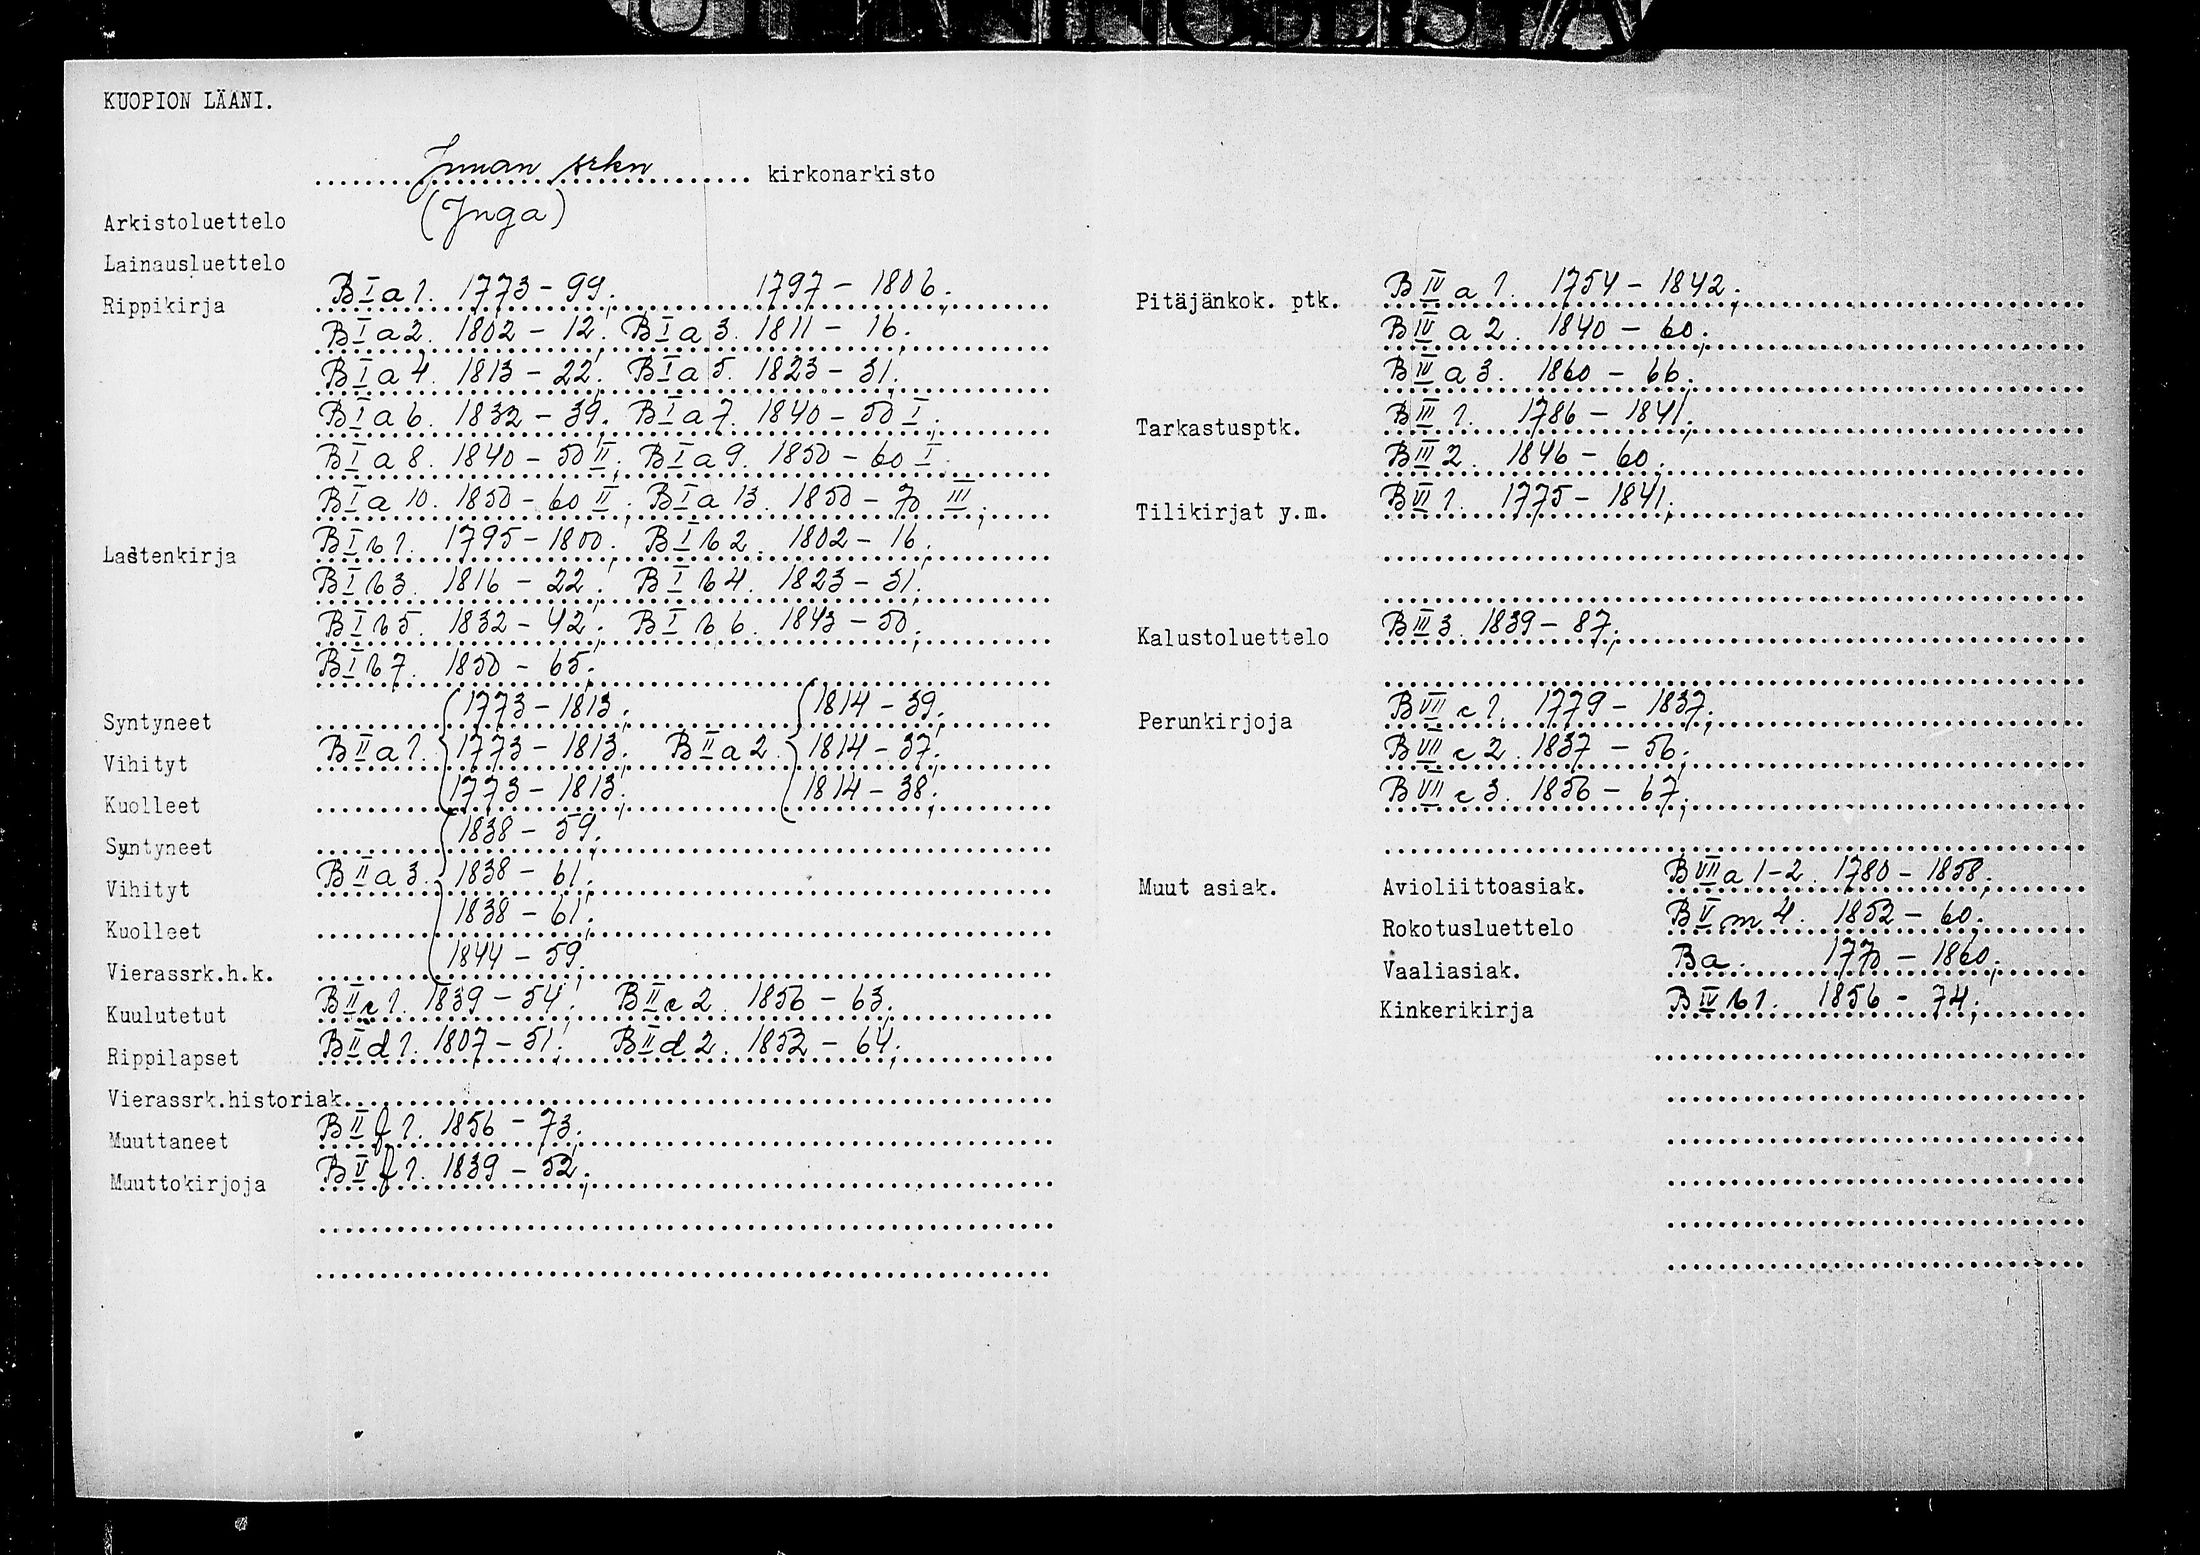 KUOPION LÄÄNI.
Juuan srkn kirkonarkisto
(Juga)
Arkistoluettelo
Lainausluettelo
Rippikirja B I a 1. 1773 - 99; 1797 - 1806;
B I a 2. 1802 - 12; B I a 3. 1811 - 16;
B I a 4. 1813 - 22; B I a 5. 1823 - 31;
B I a 6. 1832 - 39; B I a 7. 1840 - 50 I;
B I a 8. 1840 - 50 II; B I a 9. 1850 - 60 I
B I a 10. 1850 - 60 II; B I a 13. 1850 - 70 III;
Lastenkirja B I b 1. 1795 - 1800; B I b 2. 1802 - 16;
B I b 3. 1816 - 22; B I b 4. 1823 - 31;
B I b 5. 1832 - 42; B I b 6. 1843 - 50;
B I b 7. 1850 - 65;
Syntyneet 1773 - 1813; 1814 - 39;
Vihityt B II a 1. 1773 - 1813; B II a 2. 1814 - 37;
Kuolleet 1773 - 1813; 1814 - 38;
Syntyneet 1838 - 59;
Vihityt B II a 3. 1838 - 61;
Kuolleet 1838 - 61;
Vierassrk.h.k. 1844 - 59;
Kuulutetut B II c 1. 1839 - 54; B II c 2. 1856 - 63;
Rippilapset B II d 1. 1807 - 51; B II d 2. 1852 - 64;
Vierassrk.historiak.
Muuttaneet B II f 1. 1856 - 73;
Muuttokirjoja B V f 1. 1839 - 52;
Pitäjänkok. ptk. B IV a 1. 1754 - 1842;
B IV a 2. 1840 - 60;
B IV a 3. 1860 - 66;
Tarkastusptk. B III 1. 1786 - 1841;
B III 2. 1846 - 60;
Tilikirjat y.m. B VI 1. 1775 - 1841;
Kalustoluettelo B III 3. 1839 - 87;
Perunkirjoja B VII c 1. 1779 - 1837;
B VII c 2. 1837 - 56;
B VII c 3. 1856 - 67;
Muut asiak. Avioliittoasiak. B VII a 1-2. 1780 - 1858;
Rokotusluettelo B V m 4. 1852 - 60;
Vaaliasiak. Ba. 1770 - 1860;
Kinkerikirja B IV b 1. 1856 - 74;